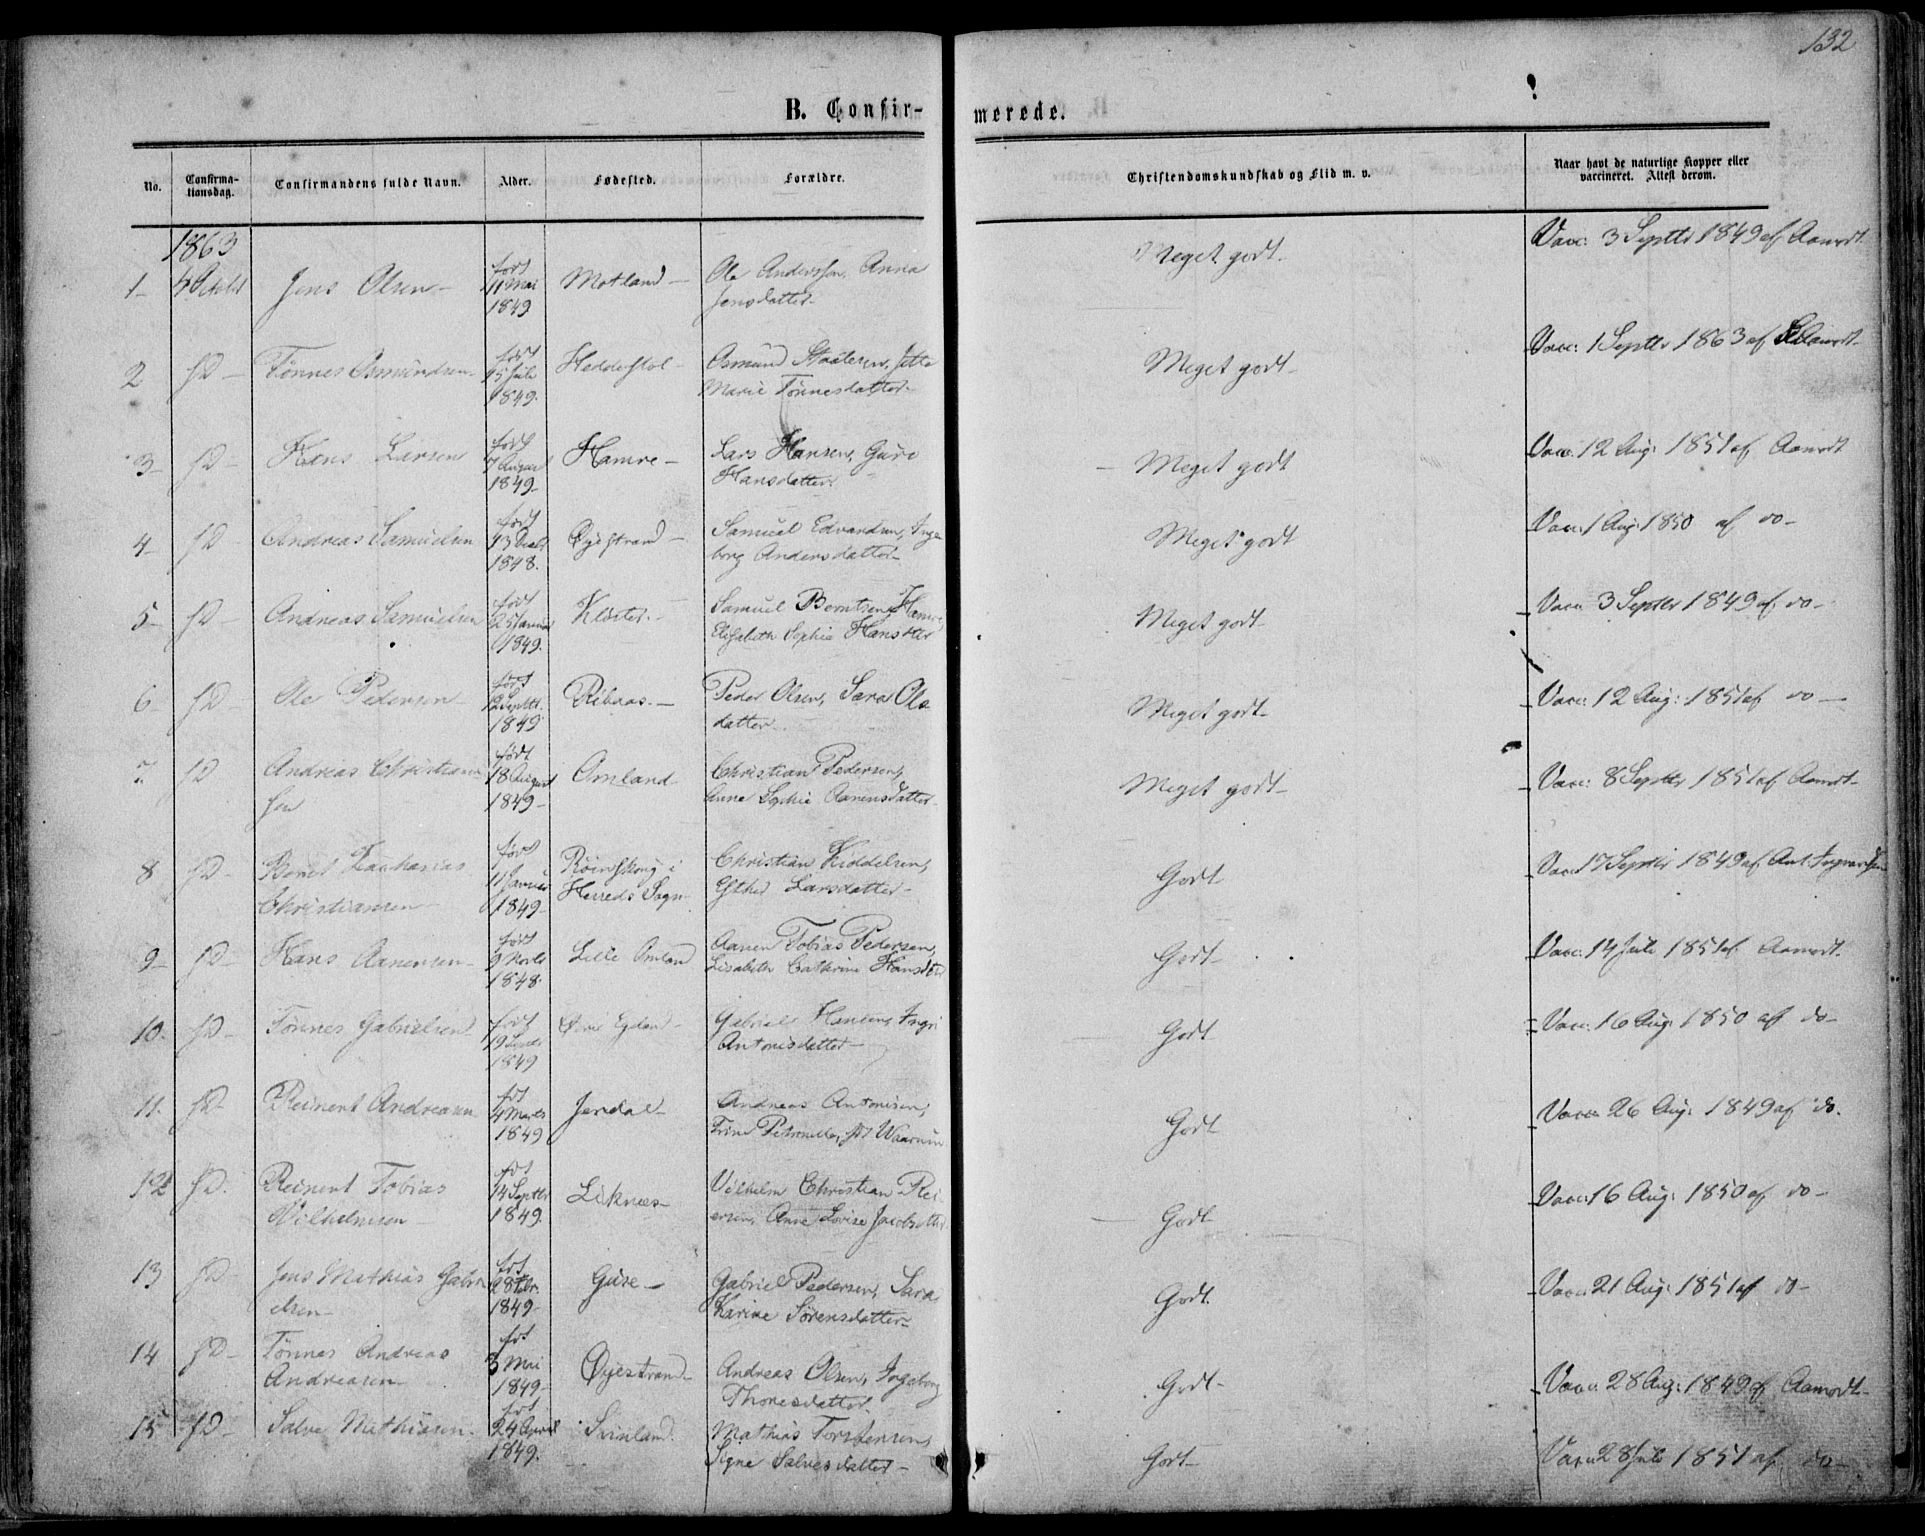 132
B. Confir-
merede.
No.
Confirma-
tionsdag.
Confirmandens fulde Navn.
Alder.
Fødested.
Forældre.
Christendomskundskab og Flid m. v.
Naar havt de naturlige Kopper eller
vaccineret. Attest derom.
1863
1- 4 Octobr Jens Olsen- født 11 Mai 1849 Motland- Ole Andersen, Anna
Jensdatter- Meget godt. Vacc: 3 Septbr 1849 af Aamodt.
2 sD- Tønnes Osmundsen- født 15 Juli 1849. Heddestol- Osmund Jette
Marie Tønnesdatter- Meget godt- Vacc: 1 Septbr 1863 af Aamodt-
3- sD- Hans Larsen født 7 August 1849- Hamre- Lars Hansen, Guro
Hansdatter. Meget godt Vacc: 12 Aug: 1851 af Aamodt
4- sD- Andreas Samuelsen født 13 Decbr 1848. Øyestrand- Samuel Edvardsen, Inge
borg Andersdatter- Meget godt Vacc: 1 Aug: 1850 af do-
5- sD- Andreas Samuelsen født 25 Januar 1849. Kloster.- Samuel Berntsen, Hamre,
Elisabeth Sophie Hansdtter Meget godt- Vacc: 3 Septbr 1849 af do-
6- sD- Ole Pedersen født 12 Septbr. 1849 Ribaas.- Peder Olsen, Sara Ols
datter- Meget godt- Vacc: 12 Aug: 1851 af do-
7. sD Andreas Christian
sen født 18 August 1849- Omland- Christian Pedersen,
Anne Sophie Aanensdatter- Meget godt- Vacc: 8 Septbr 1851 af Aamodt-
8 sD- Bernt Zacharias
Christiansen født 11 Januar 1849- Røinskoug i
Herreds Sogn- Christian Kiddelsen,
Esther Larsdatter- Godt Vacc: 17 Septbr 1849 af Ant. Ingvarsen
9- sD- Hans Aanensen- født 9 Novbr 1848. Lille Omland Aanen Tobias Pedersen,
Lisabeth Cathrine Hansdtr Godt- Vacc: 14 Juli 1851 af. Aamodt.
10. sD- Tønnes Gabrielsen født 19 1849 Egeland- Gabriel Hansen, Ingri
Antonisdatter- Godt Vacc: 16 Aug: 1850 af do-
11. sD- Reinert Andreasen født 4 Marts 1849 Jerdal- Andreas Antonisen,
Trine Petronelle, Godt Vacc: 26 Aug: 1849 af do.
12 sD. Reinert Tobias
Vilhelmsen født 14 Septbr 1849. Liknes- Vilhelm Christian Rei
ersen, Anne Lovise Jacobsdatter Godt- Vacc: 16 Aug: 1850 af do-
13 sD- Jens Mathias Gabri
elsen- født 28 Febr. 1849- Guse- Gabriel Pedersen, Sara
Karine Sørensdatter- Godt. Vacc: 21 Aug: 1851 af do-
14 sD- Tønnes Andreas
Andreasen- født 3 Mai 1849- Øyestrand- Andreas Olsen, Ingeborg
Thoresdatter. Godt- Vacc: 28 Aug: 1849 af Aamodt-
15 sD- Salve Mathiasen. født 24 April 1849. Svinland. Mathias Torstensen,
Signe Salvesdatter- Godt- Vacc: 28 Juli 1851 af do-